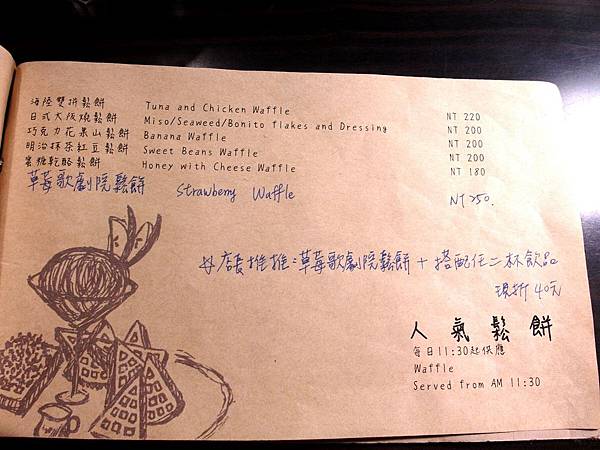 海陸雙拼鬆餅 Tuna and Chicken Waffle NT 220
日式大阪燒鬆餅 Miso/Seaweed/Bonito flakes and Dressing NT 200
巧克力花果山鬆餅 Banana Waffle NT 200
明治抹茶紅豆鬆餅 Sweet Beans Waffle NT 200
蜜糖乾酪鬆餅 Honey with Cheese Waffle NT 180
草莓歌劇院鬆餅 Strawberry Waffle NT 250.
店長推推:草莓歌劇院鬆餅+搭配任一杯飲品
現折40元
人氣鬆餅
每日11:30起供應
Waffle
Served from AM 11:30